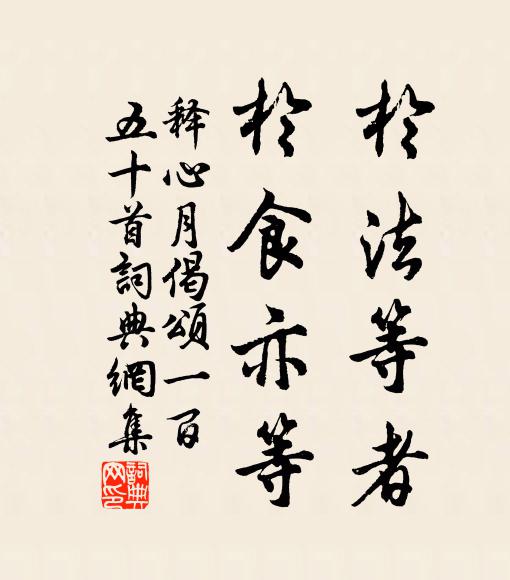 於法等者
於食亦等
释心月偈頌一百
五十首詞典網集
詞典网印